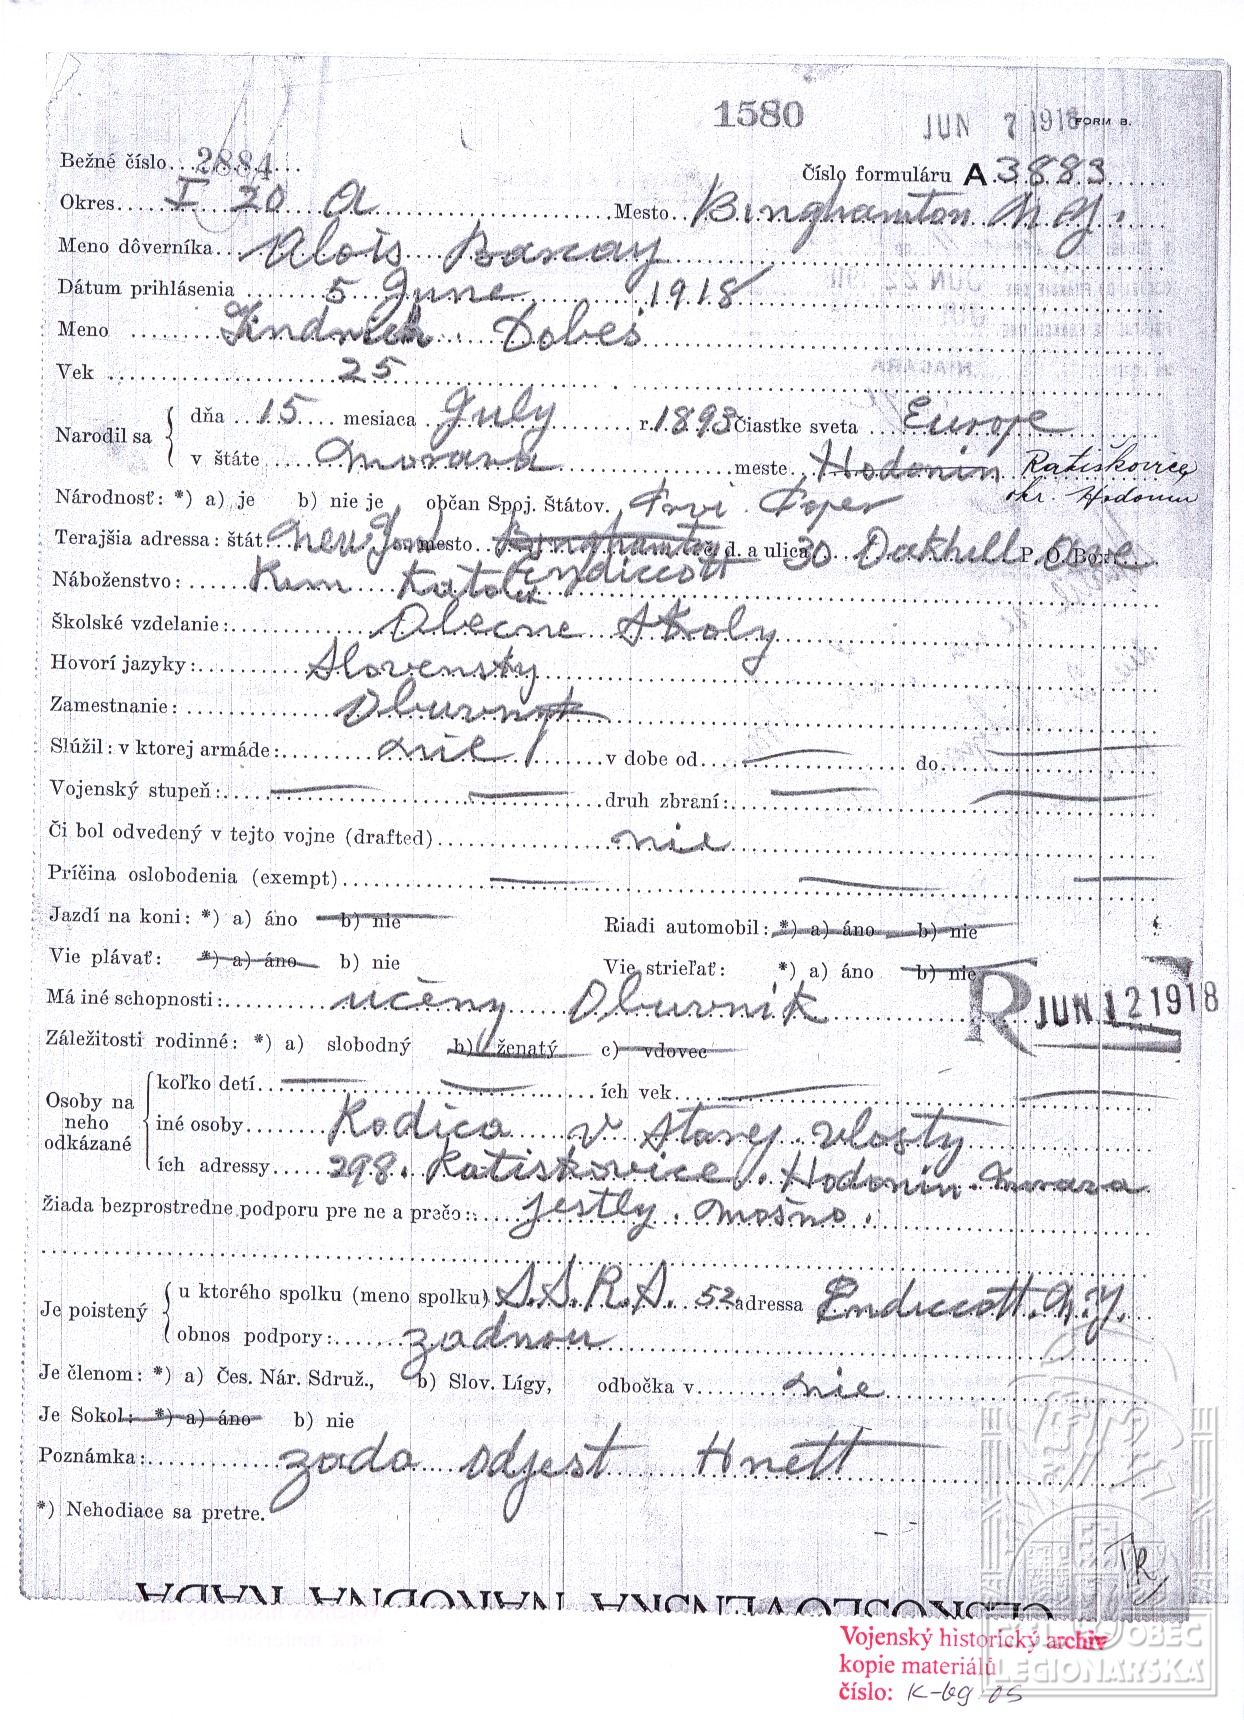 1580
JUN 7 1918 FORM B.
Bežné číslo 2884 Číslo formuláru A 3883
Okres I 20 A Mesto Binghamton N.Y.
Meno dôverníka Alois
Dátum prihlásenia 5 June 1918
Meno Jindrich Dobeš
Vek 25
Narodil sa { dňa 15 mesiaca July r. 1893 čiastke sveta Europe
v štáte Morava meste Hodonin Ratiškovice
okr. Hodonin
Národnosť: *) a) je b) nie je občan Spoj. Štátov. Prvi Paper
Terajšia adressa: štát New York mesto Binghamton č. d. a ulica 30 Oakhill Ave P. O. Box
Endiccott
Náboženstvo: Katolik
Školské vzdelanie: Obecne Skoly
Hovorí jazyky: Slovensky
Zamestnanie: Obuvnik
Slúžil: v ktorej armáde: nie v dobe od do
Vojenský stupeň: druh zbraní:
Či bol odvedený v tejto vojne (drafted) nie
Príčina oslobodenia (exempt)
Jazdí na koni: *) a) áno b) nie Riadi automobil: *) a) áno b) nie
Vie plávať: *) a) áno b) nie Vie strieľať: *) a) áno b) nie
R JUN 12 1918
Má iné schopnosti: učeny Obuvnik
Záležitosti rodinné: *) a) slobodný b) ženatý c) vdovec
Osoby na neho odkázané { koľko detí ích vek
iné osoby Rodica v starej vlasty
ích adressy 298. Ratiskovice. Hodonin. Morava
Žiada bezprostredne podporu pre ne a prečo: jestly mošno.
Je poistený { u ktorého spolku (meno spolku) S.S.P.S. 52 adressa Endiccott. N.Y.
obnos podpory: zadnou
Je členom: *) a) Čes. Nár. Sdruž., b) Slov. Lígy, odbočka v nie
Je Sokol: *) a) áno b) nie
Poznámka: zada odjest Hnett
*) Nehodiace sa pretre.
ČESKOSLOVENSKÁ NÁRODNÁ RADA
Vojenský historický archiv
kopie materiálů
číslo: K-69-05
OBEC
LEGIONÁŘSKÁ